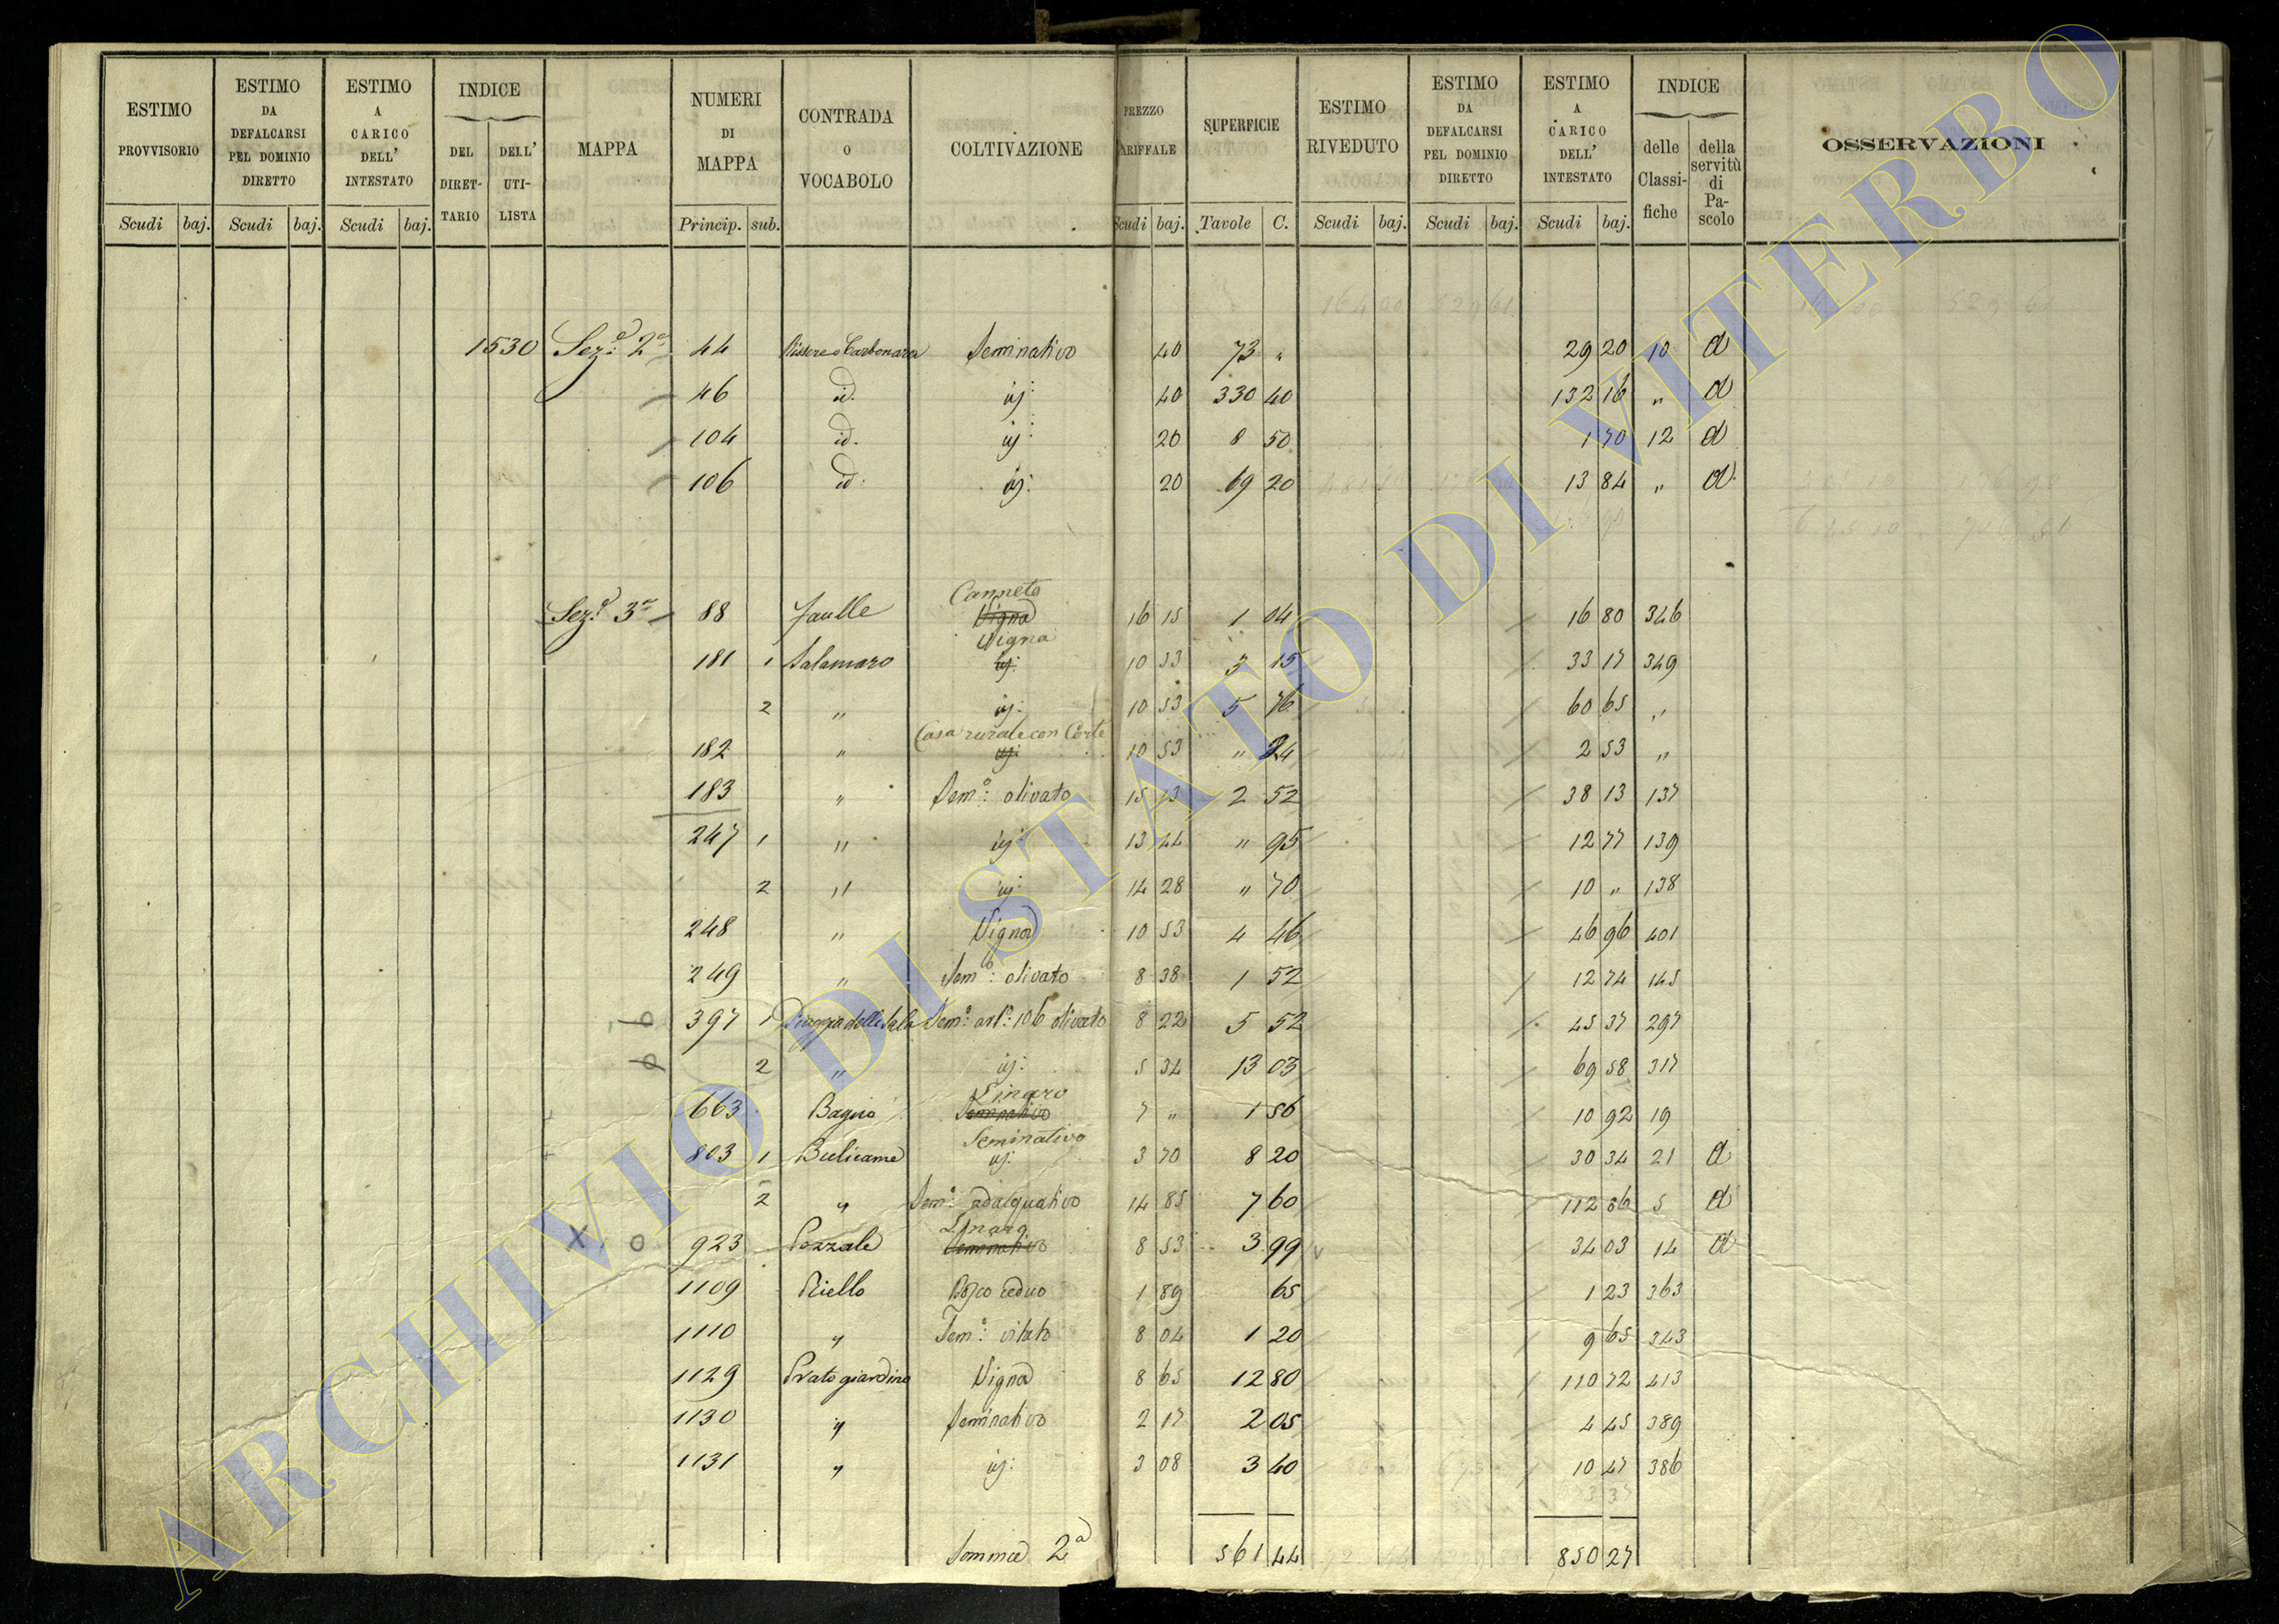 ESTIMO PROVVISORIO
ESTIMO DA DEFALCARSI PEL DOMINIO DIRETTO
ESTIMO A CARICO DELL' INTESTATO
INDICE
DEL DIRET-TARIO
DELL' UTI-LISTA
MAPPA
NUMERI DI MAPPA
CONTRADA O VOCABOLO
COLTIVAZIONE
PREZZO TARIFFALE
SUPERFICIE
ESTIMO RIVEDUTO
ESTIMO DA DEFALCARSI PEL DOMINIO DIRETTO
ESTIMO A CARICO DELL' INTESTATO
INDICE
delle Classi-fiche
della servitù di Pa-scolo
OSSERVAZIONI
Scudi baj. Scudi baj. Scudi baj. Princip. sub. Scudi baj. Tavole C. Scudi baj. Scudi baj. Scudi baj.
1530 Sez.e 2a 44 Carbonara Seminativo 40 73 " 29 20 10 a
46 id. id: 40 330 40 132 16 " a
104 id. id: 20 8 50 1 70 12 a
106 id: id: 20 69 20 13 84 " a
Canneto
Sez.e 3a 88 Faulle Vigna 16 15 1 04 16 80 346
Vigna
181 1 Salamaro id: 10 53 3 15 33 17 349
2 " id: 10 53 5 76 60 65 "
Casa rurale con Corte
182 " id: 10 53 " 24 2 53 "
183 " Sem.o olivato 15 13 2 52 38 13 137
247 1 " id: 13 44 " 95 12 77 139
2 " id: 14 28 " 70 10 " 138
248 " Vigna 10 53 4 46 46 96 401
249 " Sem.o olivato 8 38 1 52 12 74 145
397 1 delle Sala Sem.o art.o 106 olivato 8 22 5 52 45 37 297
2 " id: 5 34 13 03 69 58 317
Linaro
663 Bagno Seminativo 7 " 1 56 10 92 19
Seminativo
803 1 Bulicame id: 3 70 8 20 30 34 21 a
2 " Sem.o adacquativo 14 85 7 60 112 86 5 a
Linaro
X o 923 Pozzale Seminativo 8 53 3 99 34 03 14 a
1109 Riello Bosco ceduo 1 89 65 1 23 363
1110 " Sem.o vitato 8 04 1 20 9 65 343
1129 Prato giardino Vigna 8 65 12 80 110 72 413
1130 " Seminativo 2 17 2 05 4 45 389
1131 " id: 3 08 3 40 10 47 386
Somma 2a 561 44 850 27
ARCHIVIO DI STATO DI VITERBO